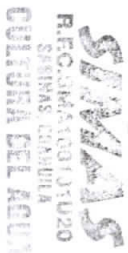 SIMAS
R.F.C. SMS 031031 U20
SABINAS, COAHUILA
CULTURA DEL AGUA